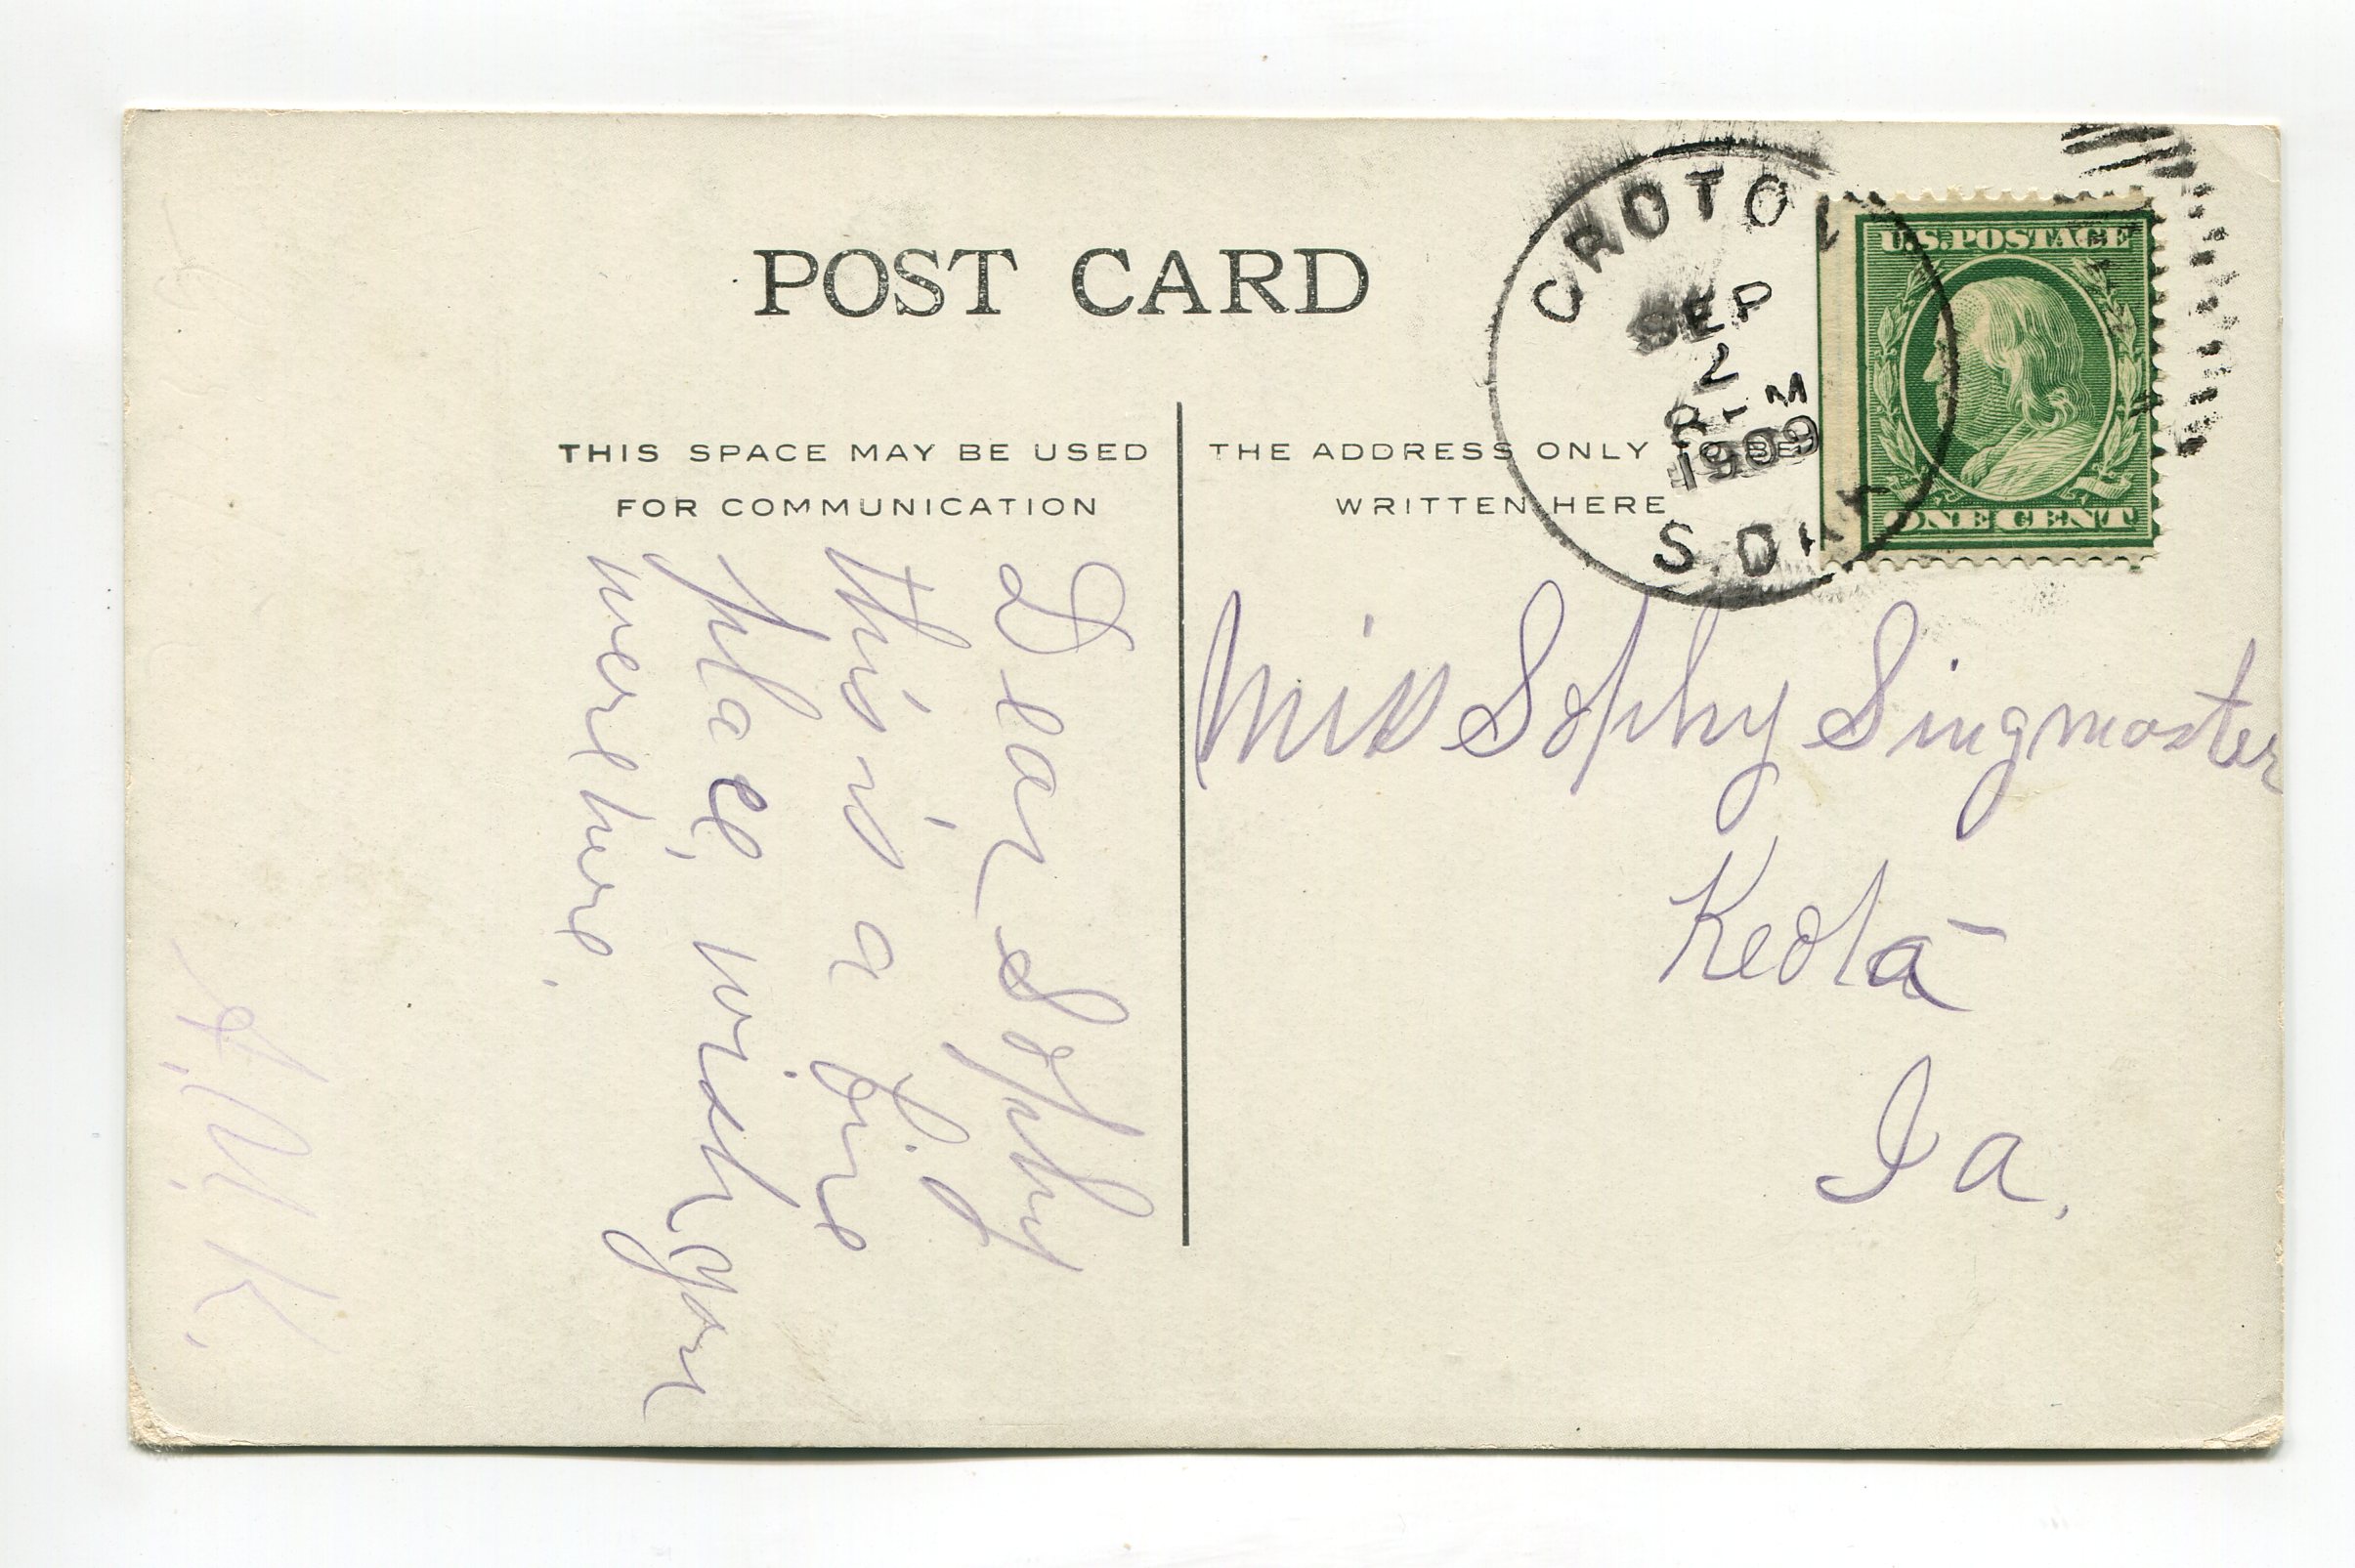 POST CARD
THIS SPACE MAY BE USED
FOR COMMUNICATION
THE ADDRESS ONLY TO BE
WRITTEN HERE
CROTON
SEP
2
M
1909
S. DAK
U.S. POSTAGE
ONE CENT
Dear Sophy
this is a fine
place, wish you
were here.
K.
Miss Sophy Singmaster
Keota
Ia.